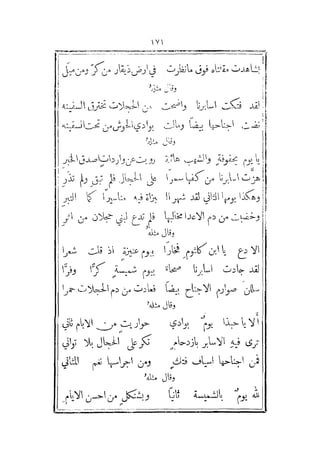 ١٧١
لشاهدت مقناه فوق مانظرت في ارض ذيقار من كرّ ومن مبلي
وقال مثله
لقد فتكت اسابرنا واضحت من الحجلات تخترق السفينه
نضت اجناحها بيضًا ومالت بوادي الحوش من تحت السفينه
وقال مثله
يا يوم بحفوفة والشهب هائة رويت عن واردات اصدق الخبر
هزت اسابرنا من كفها سمرًا على الحجال فلم تبق ولم تذر
وهكذا يومها الثاني لقد شهرا بزاة فيه مناسيرًا كما التبر
وخضبت من دم الاعدا مخالبها فلم تدع لبني حجلان من اثر
وقال مثله
الا دع يا ابن كلثوم فخارًا بيوم عنيزة اذ قلت شعرا
لقد جادت اسابرنا صحاء بيوم شميسة كرًّا وفرًّا
سللن صوارم الاجناح بيضًا فعادت من دم الحجلات حمرا
وقال مثله
ألا يا حبذا يوم بوادي حواريت من الايام ثاني
ترى فيه الاسابر بازدحام تكر على الحجال بلا تواني
فمن اجناحها اسياف فتك ومن اجراسها نغم المثاني
وقال مثله
لله يوم بالشميسة ثانيًا وبشتكلي من احسن الايام